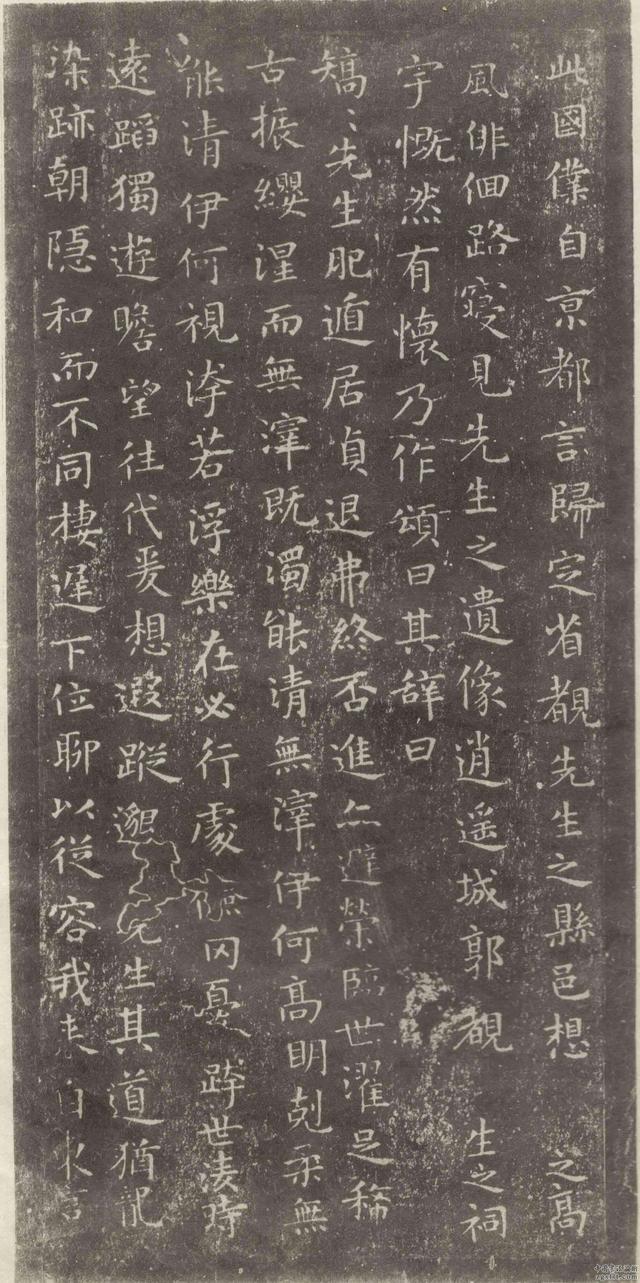 此國僕自京都言歸定省覩先生之縣邑想之高
風俳佪路寢見先生之遺像逍遥城郭觀生之祠
宇慨然有懷乃作頌曰其辭曰
矯〻先生肥遁居貞退弗終否進亦避榮臨世濯足稀
古振纓涅而無滓既濁能清無滓伊何高明剋柔無
能清伊何視洿若浮樂在必行處儉罔憂跨世淩時
遠蹈獨遊瞻望往代爰想遐蹤邈先生其道猶龍
染跡朝隱和而不同棲遲下位聊以從容我来自東言